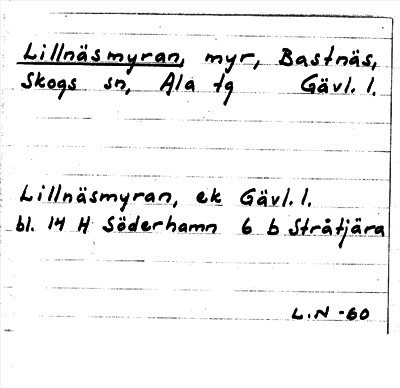 Lillnäsmyran, myr, Bastnäs,
Skogs sn, Ala tg Gävl. l.
Lillnäsmyran, ek Gävl. l.
bl. 14 H Söderhamn 6 b Stråtjära
L.N -60